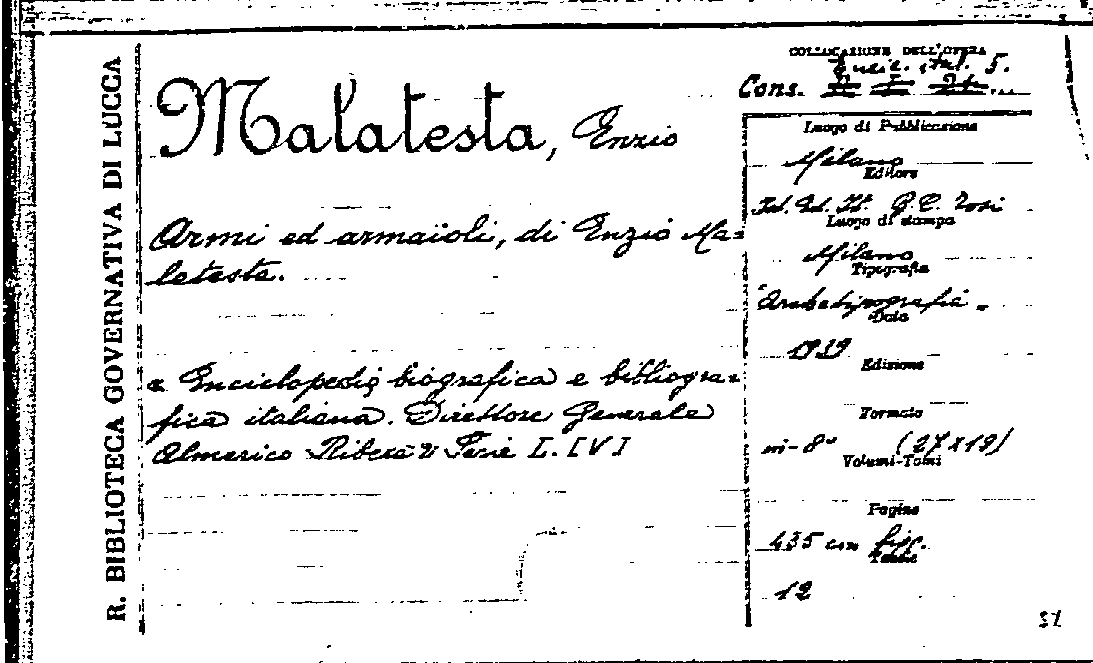 R. BIBLIOTECA GOVERNATIVA DI LUCCA
Malatesta, Enzio
Armi ed armaioli, di Enzio Ma=
latesta.
« Enciclopedia biografica e bibliogra-
fica italiana. Direttore Generale
Almerico Ribera » Serie
COLLOCAZIONE DELL'OPERA
Encic. ital. 5.
Cons.
Luogo di Pubblicazione
Milano
Editore
Ist. Ed. It. G.E. Tosi
Luogo di stampa
Milano
Tipografia
Archetipografia
Data
1939
Edizione
Formato
in-8° (27x19)
Volumi-Tomi
Pagine
435 con fig.
Tavole
12